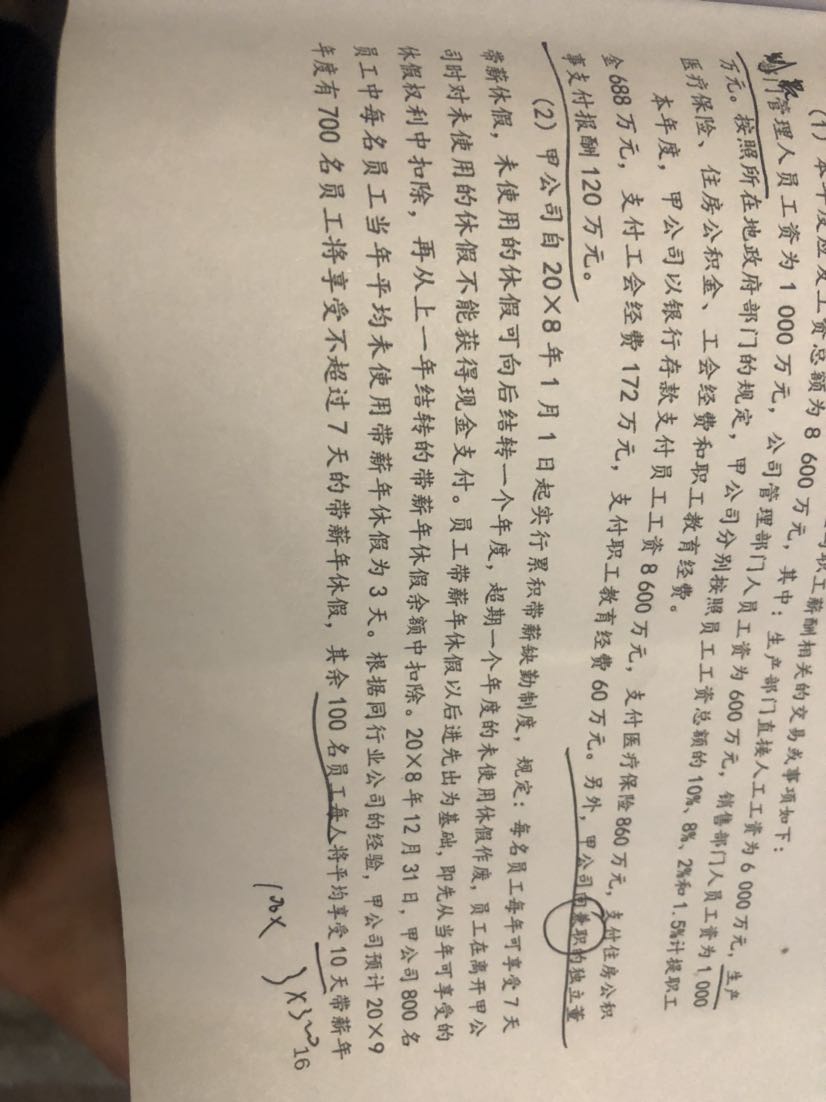 (1) 本年度应发工资总额为 8 600 万元，其中：生产部门直接人工工资为 6 000 万元，生产
部门管理人员工资为 1 000 万元，公司管理部门人员工资为 600 万元，销售部门人员工资为 1 000
万元。按照所在地政府部门的规定，甲公司分别按照员工工资总额的 10%、8%、2%和 1.5%计提职工
医疗保险、住房公积金、工会经费和职工教育经费。
本年度，甲公司以银行存款支付员工工资 8 600 万元，支付医疗保险 860 万元，支付住房公积
金 688 万元，支付工会经费 172 万元，支付职工教育经费 60 万元。另外，甲公司向兼职的独立董
事支付报酬 120 万元。
(2) 甲公司自 20×8 年 1 月 1 日起实行累积带薪缺勤制度，规定：每名员工每年可享受 7 天
带薪休假，未使用的休假可向后结转一个年度，超期一个年度的未使用休假作废，员工在离开甲公
司时对未使用的休假不能获得现金支付。员工带薪年休假以后进先出为基础，即先从当年可享受的
休假权利中扣除，再从上一年结转的带薪年休假余额中扣除。20×8 年 12 月 31 日，甲公司 800 名
员工中每名员工当年平均未使用带薪年休假为 3 天。根据同行业公司的经验，甲公司预计 20×9
年度有 700 名员工将享受不超过 7 天的带薪年休假，其余 100 名员工每人将平均享受 10 天带薪年
16